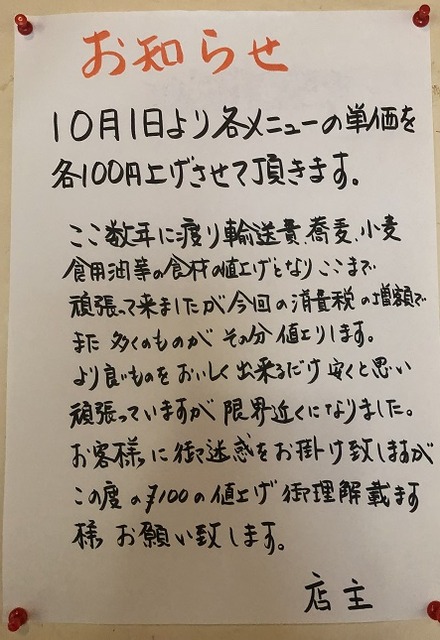 お知らせ
10月1日より各メニューの単価を
各100円上げさせて頂きます。
ここ数年に渡り輸送費、蕎麦、小麦
食用油等の食材の値上げとなりここまで
頑張って来ましたが今回の消費税の増額で
また多くのものがその分値上りします。
より良いものをおいしく出来るだけ安くと思い
頑張っていますが限界近くになりました。
お客様に御迷惑をお掛け致しますが
この度の¥100の値上げ御理解載ます
様お願い致します。
店主